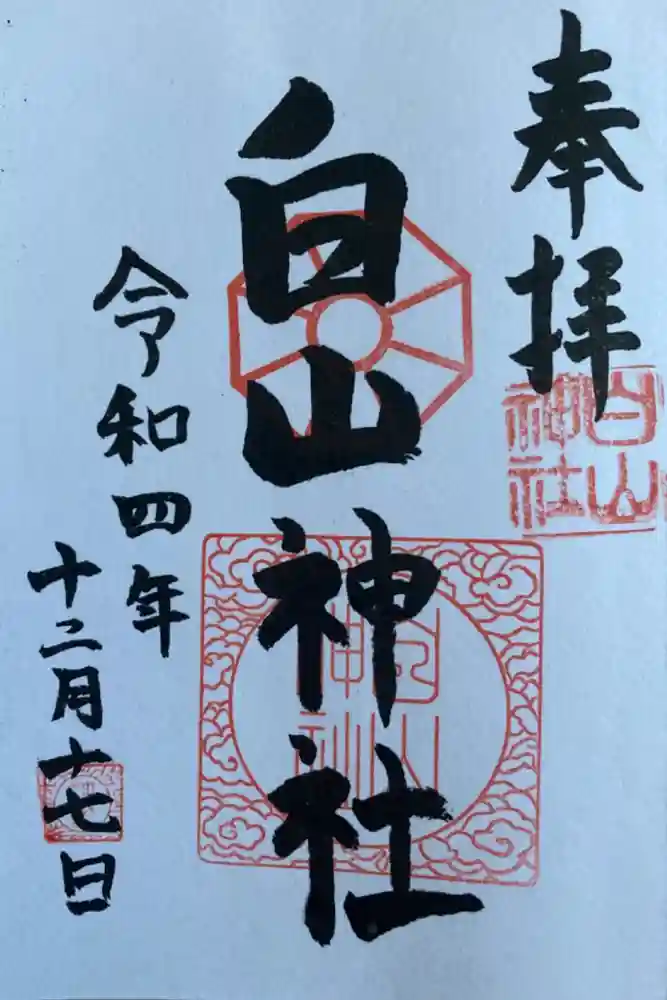 奉拝
白山
神社
白山神社
白山
神社
令和四年
十二月十七日